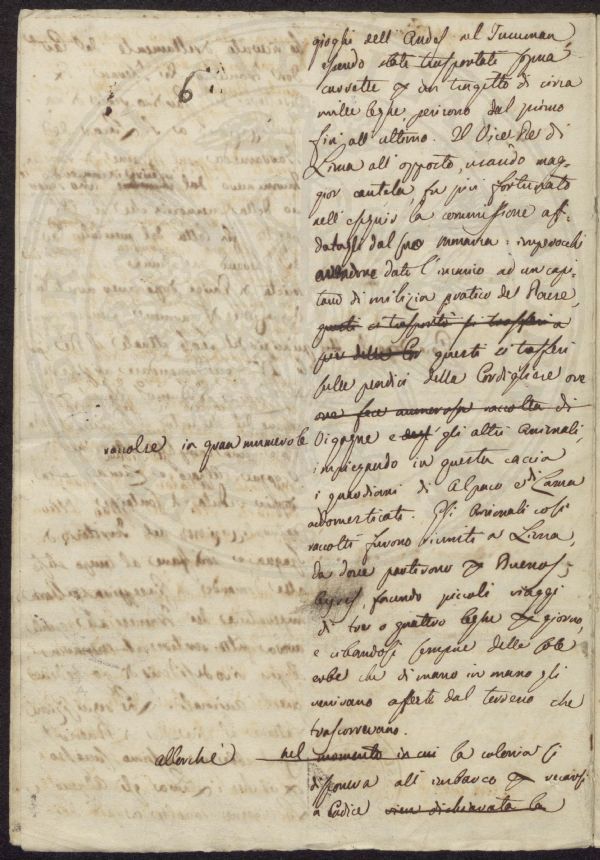 6
gioghi dell' Andes nel Tucuman
essendo state trasportate senza
curvette p un tragitto di circa
mille leghe perirono dal primo
fin all' ultimo. Il Vice Re di
Lima all' opposto, usando mag-
gior cautela, fu più fortunato
nell' eseguir la commissione aff-
datagli dal suo monarca: imperocchè
avendone dato l'incarico ad un capi-
tano di milizia pratico del Paese,
questi si trasportò si trasferì a
per delle Cor questi si trasferì
sulle pendici della Cordigliere ove
ove fece numerosa raccolta di
raccolse in gran numero le
Vigogne e degl' gli altri animali,
impiegando in questa caccia
i guardiani di Alpaco e di Lama
addomesticati. Gli animali così
raccolti furono riuniti a Lima,
da dove partirono p Buenos-
Ayres, facendo piccoli viaggi
di tre o quattro leghe p giorno,
e cibandosi sempre delle sole
erbe che di mano in mano gli
venivano offerte dal terreno che
trascorrevano.
allorchè nel momento in cui la colonia si
disponeva all' imbarco p recarsi
a Cadice vien dichiarata la